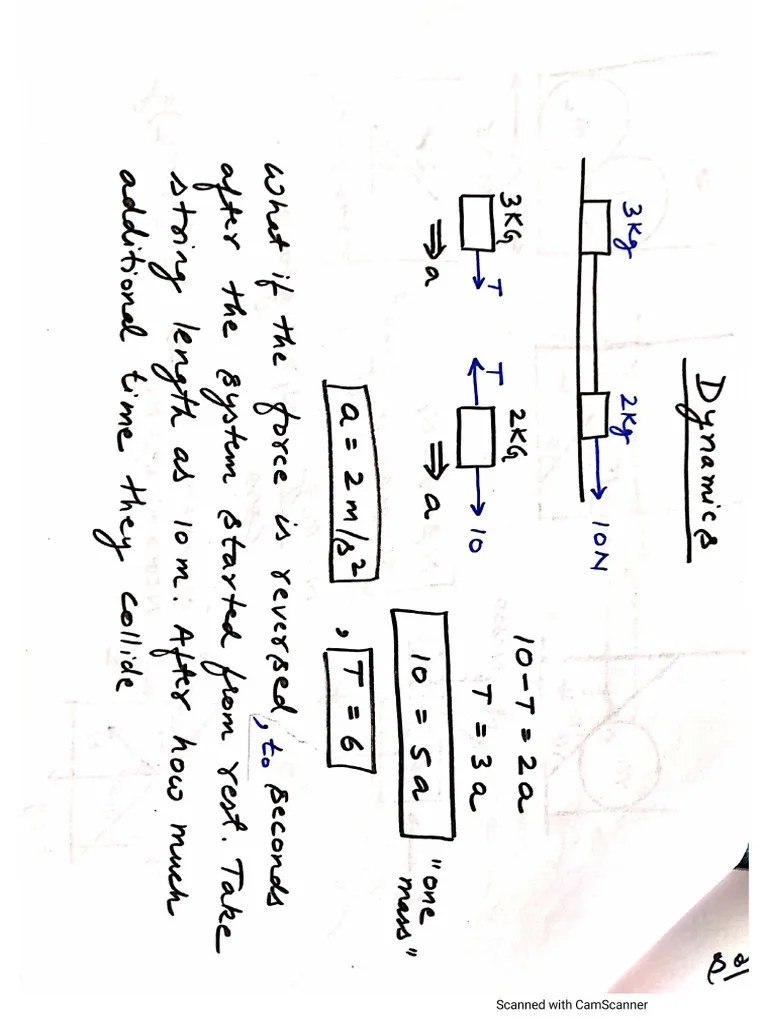 Dynamics
3Kg 2Kg 10N
3KG T T 2KG 10
⇒ a ⇒ a
10 - T = 2a
T = 3a
10 = 5a "one mass"
a = 2 m/s² , T = 6
What if the force is reversed, to seconds
after the system started from rest. Take
string length as 10 m. After how much
additional time they collide
Scanned with CamScanner